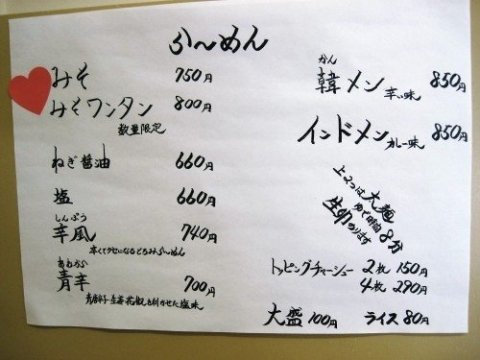 らーめん
みそ 750円
みそワンタン 800円
数量限定
ねぎ醤油 660円
塩 660円
しんぷう
辛風 740円
辛くてクセになるとろみらーめん
あおから
青辛 700円
青唐辛子・生姜・花椒を利かせた塩味
かん
韓メン 辛い味 850円
インドメン カレー味 850円
上2つは太麺
ゆで時間8分
生卵のります
トッピングチャーシュー 2枚 150円
4枚 290円
大盛 100円 ライス 80円